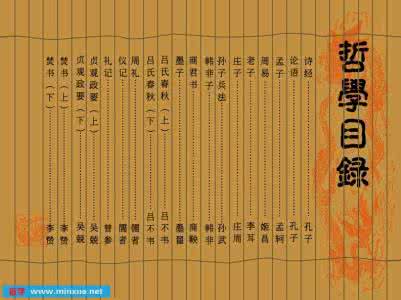 哲學目錄
诗经……………孔子
论语……………孔子
孟子……………孟轲
周易……………姬昌
老子……………李耳
庄子……………庄周
孙子兵法……………孙武
韩非子……………韩非
商君书……………商鞅
墨子……………墨翟
吕氏春秋（上）……………吕不韦
吕氏春秋（下）……………吕不韦
周礼……………儒者
仪记……………儒者
礼记……………曾参
贞观政要（上）……………吴兢
贞观政要（下）……………吴兢
焚书（上）……………李贽
焚书（下）……………李贽
www.minxue.net